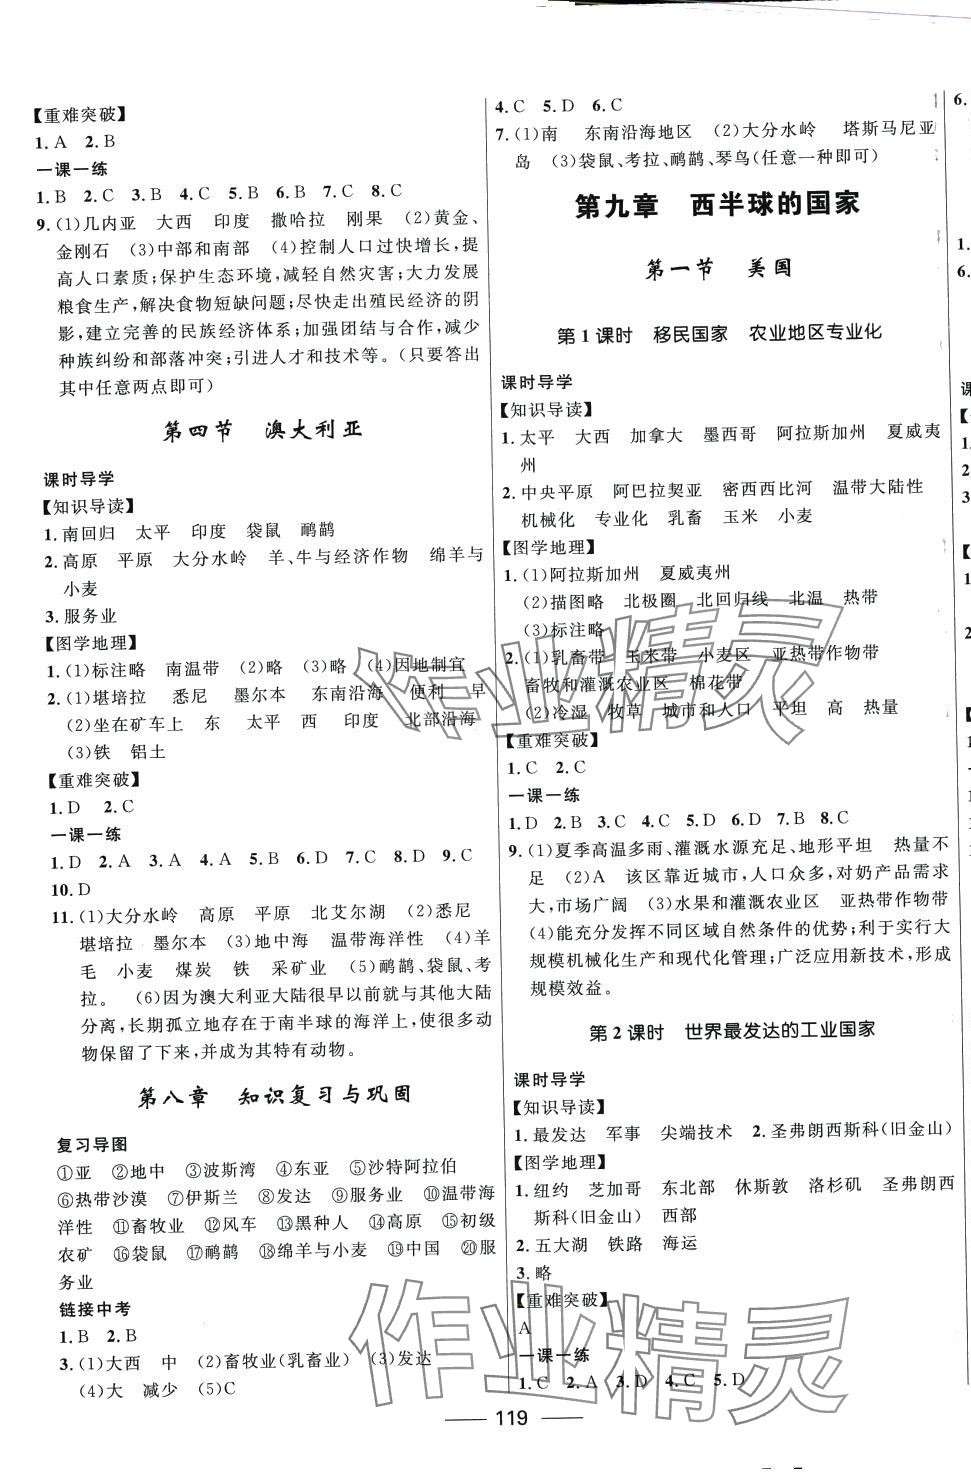 【重难突破】
1. A　2. B
一课一练
1. B　2. C　3. B　4. C　5. B　6. B　7. C　8. C
9. (1)几内亚　大西　印度　撒哈拉　刚果　(2)黄金、
金刚石　(3)中部和南部　(4)控制人口过快增长,提
高人口素质;保护生态环境,减轻自然灾害;大力发展
粮食生产,解决食物短缺问题;尽快走出殖民经济的阴
影,建立完善的民族经济体系;加强团结与合作,减少
种族纠纷和部落冲突;引进人才和技术等。(只要答出
其中任意两点即可)
第四节　澳大利亚
课时导学
【知识导读】
1. 南回归　太平　印度　袋鼠　鸸鹋
2. 高原　平原　大分水岭　羊、牛与经济作物　绵羊与
小麦
3. 服务业
【图学地理】
1. (1)标注略　南温带　(2)略　(3)略　(4)因地制宜
2. (1)堪培拉　悉尼　墨尔本　东南沿海　便利　早
(2)坐在矿车上　东　太平　西　印度　北部沿海
(3)铁　铝土
【重难突破】
1. D　2. C
一课一练
1. D　2. A　3. A　4. A　5. B　6. B　7. C　8. D　9. C
10. D
11. (1)大分水岭　高原　平原　北艾尔湖　(2)悉尼
堪培拉　墨尔本　(3)地中海　温带海洋性　(4)羊
毛　小麦　煤炭　铁　采矿业　(5)鸸鹋、袋鼠、考
拉。　(6)因为澳大利亚大陆很早以前就与其他大陆
分离,长期孤立地存在于南半球的海洋上,使很多动
物保留了下来,并成为其特有动物。
第八章　知识复习与巩固
复习导图
①亚　②地中　③波斯湾　④东亚　⑤沙特阿拉伯
⑥热带沙漠　⑦伊斯兰　⑧发达　⑨服务业　⑩温带海
洋性　⑪畜牧业　⑫风车　⑬黑种人　⑭高原　⑮初级
农矿　⑯袋鼠　⑰鸸鹋　⑱绵羊与小麦　⑲中国　⑳服
务业
链接中考
1. B　2. B
3. (1)大西　中　(2)畜牧业(乳畜业)　(3)发达
(4)大　减少　(5)C
4. C　5. D　6. C
7. (1)南　东南沿海地区　(2)大分水岭　塔斯马尼亚
岛　(3)袋鼠、考拉、鸸鹋、琴鸟(任意一种即可)
第九章　西半球的国家
第一节　美国
第1课时　移民国家　农业地区专业化
课时导学
【知识导读】
1. 太平　大西　加拿大　墨西哥　阿拉斯加州　夏威夷
州
2. 中央平原　阿巴拉契亚　密西西比河　温带大陆性
机械化　专业化　乳畜　玉米　小麦
【图学地理】
1. (1)阿拉斯加州　夏威夷州
(2)描图略　北极圈　北回归线　北温　热带
(3)标注略
2. (1)乳畜带　玉米带　小麦区　亚热带作物带
畜牧和灌溉农业区　棉花带
(2)冷湿　牧草　城市和人口　平坦　高　热量
【重难突破】
1. C　2. C
一课一练
1. D　2. B　3. C　4. C　5. D　6. D　7. B　8. C
9. (1)夏季高温多雨、灌溉水源充足、地形平坦　热量不
足　(2)A　该区靠近城市,人口众多,对奶产品需求
大,市场广阔　(3)水果和灌溉农业区　亚热带作物带
(4)能充分发挥不同区域自然条件的优势;利于实行大
规模机械化生产和现代化管理;广泛应用新技术,形成
规模效益。
第2课时　世界最发达的工业国家
课时导学
【知识导读】
1. 最发达　军事　尖端技术　2. 圣弗朗西斯科(旧金山)
【图学地理】
1. 纽约　芝加哥　东北部　休斯敦　洛杉矶　圣弗朗西
斯科(旧金山)　西部
2. 五大湖　铁路　海运
3. 略
【重难突破】
A
一课一练
1. C　2. A　3. D　4. C　5. D
119
作业精灵
作业精灵